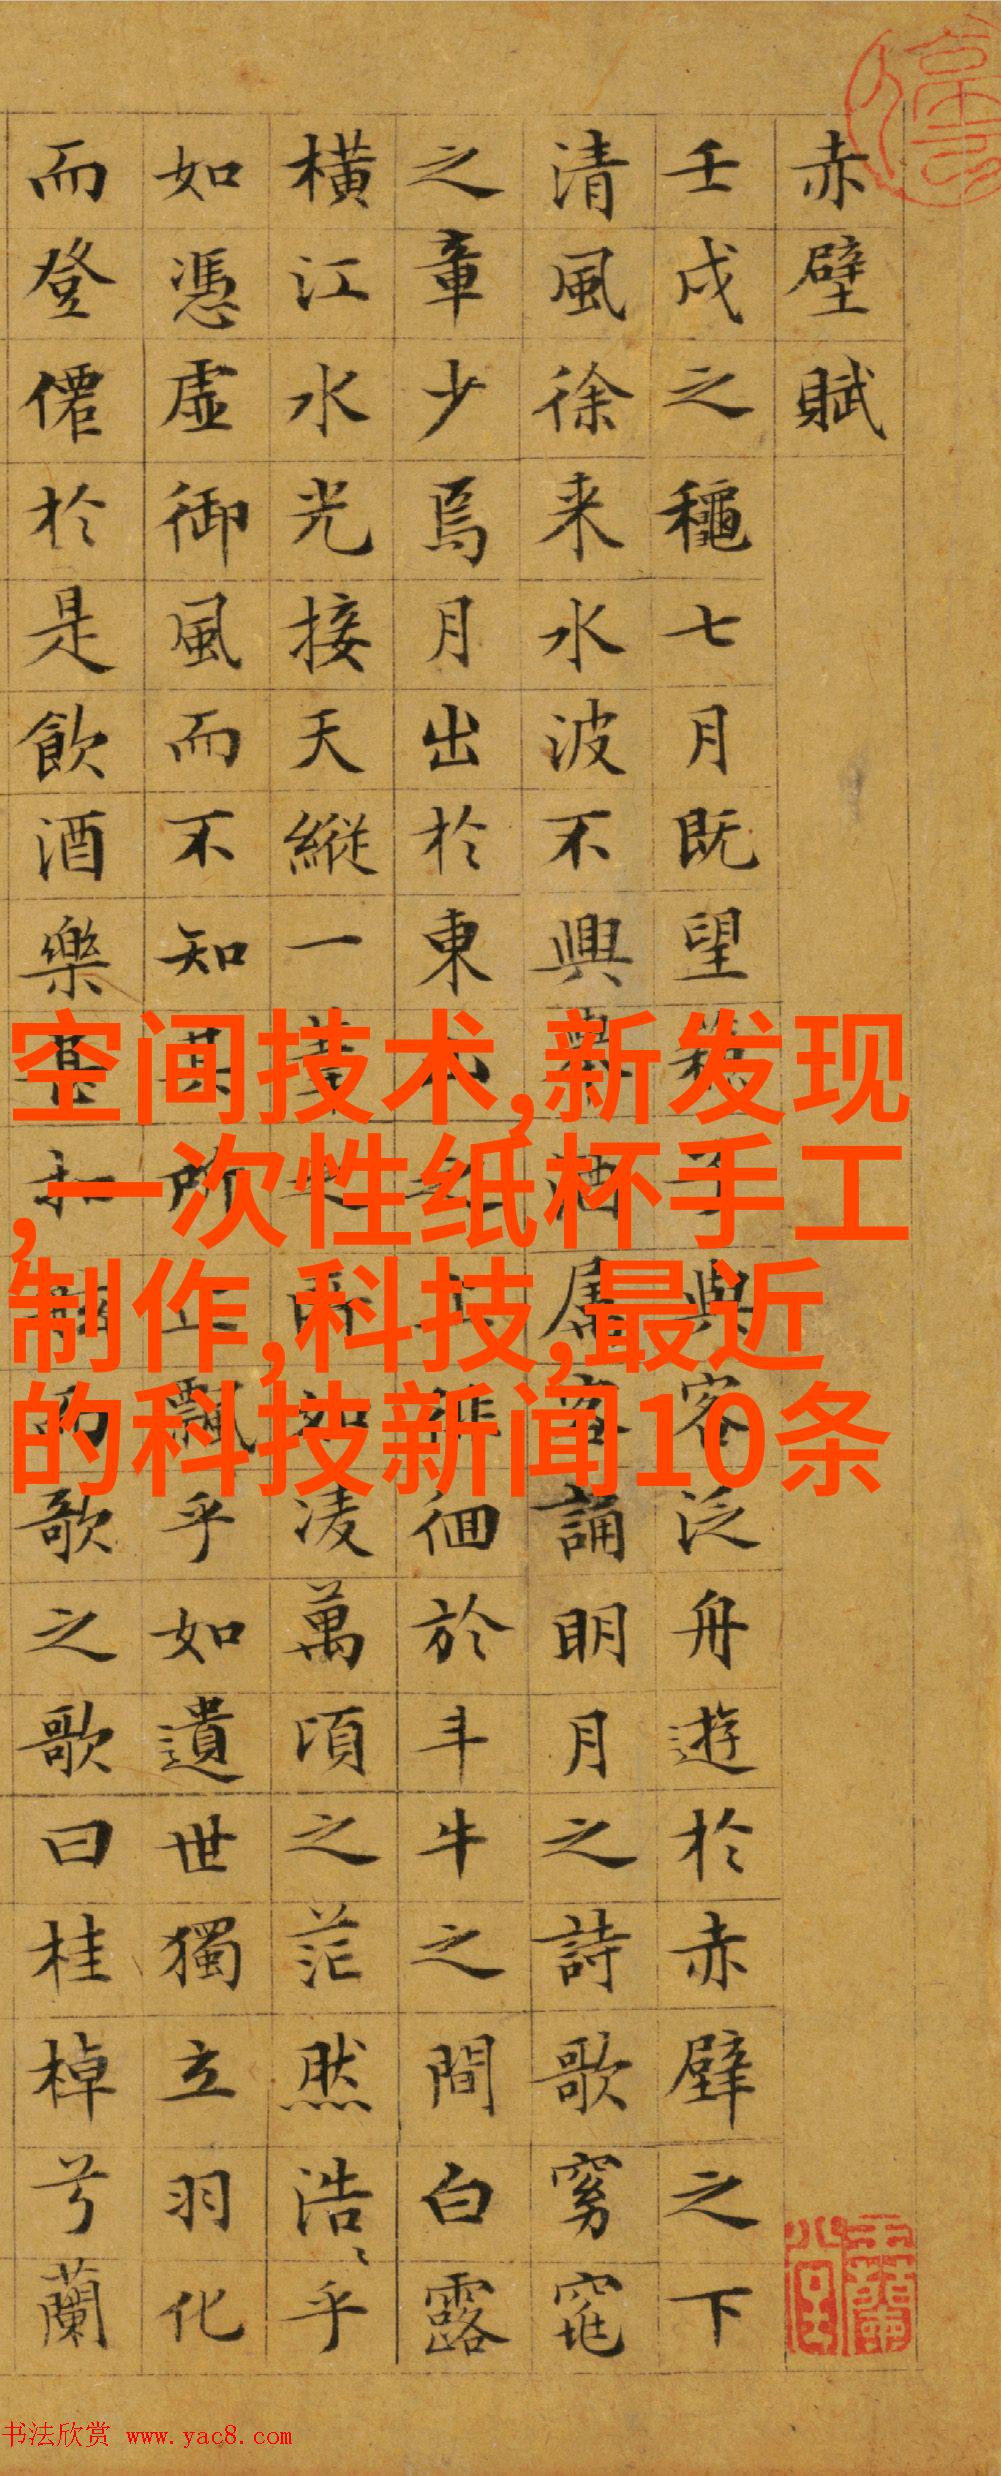 赤壁賦
壬戌之穐七月既望與客泛舟遊於赤壁之下
清風徐来水波不興舉酒屬客誦明月之詩歌窈窕
之章少焉月出於東徊於斗牛之間白露
橫江水光接天縱一葦如凌萬頃之茫然浩〻乎
如憑虛御風而不知其所止飄乎如遺世獨立羽化
而登僊於是飲酒樂甚扣而歌之歌曰桂棹兮蘭
空间技术,新发现
,一次性纸杯手工
制作,科技,最近
的科技新闻10条
书法欣赏 www.yac8.com